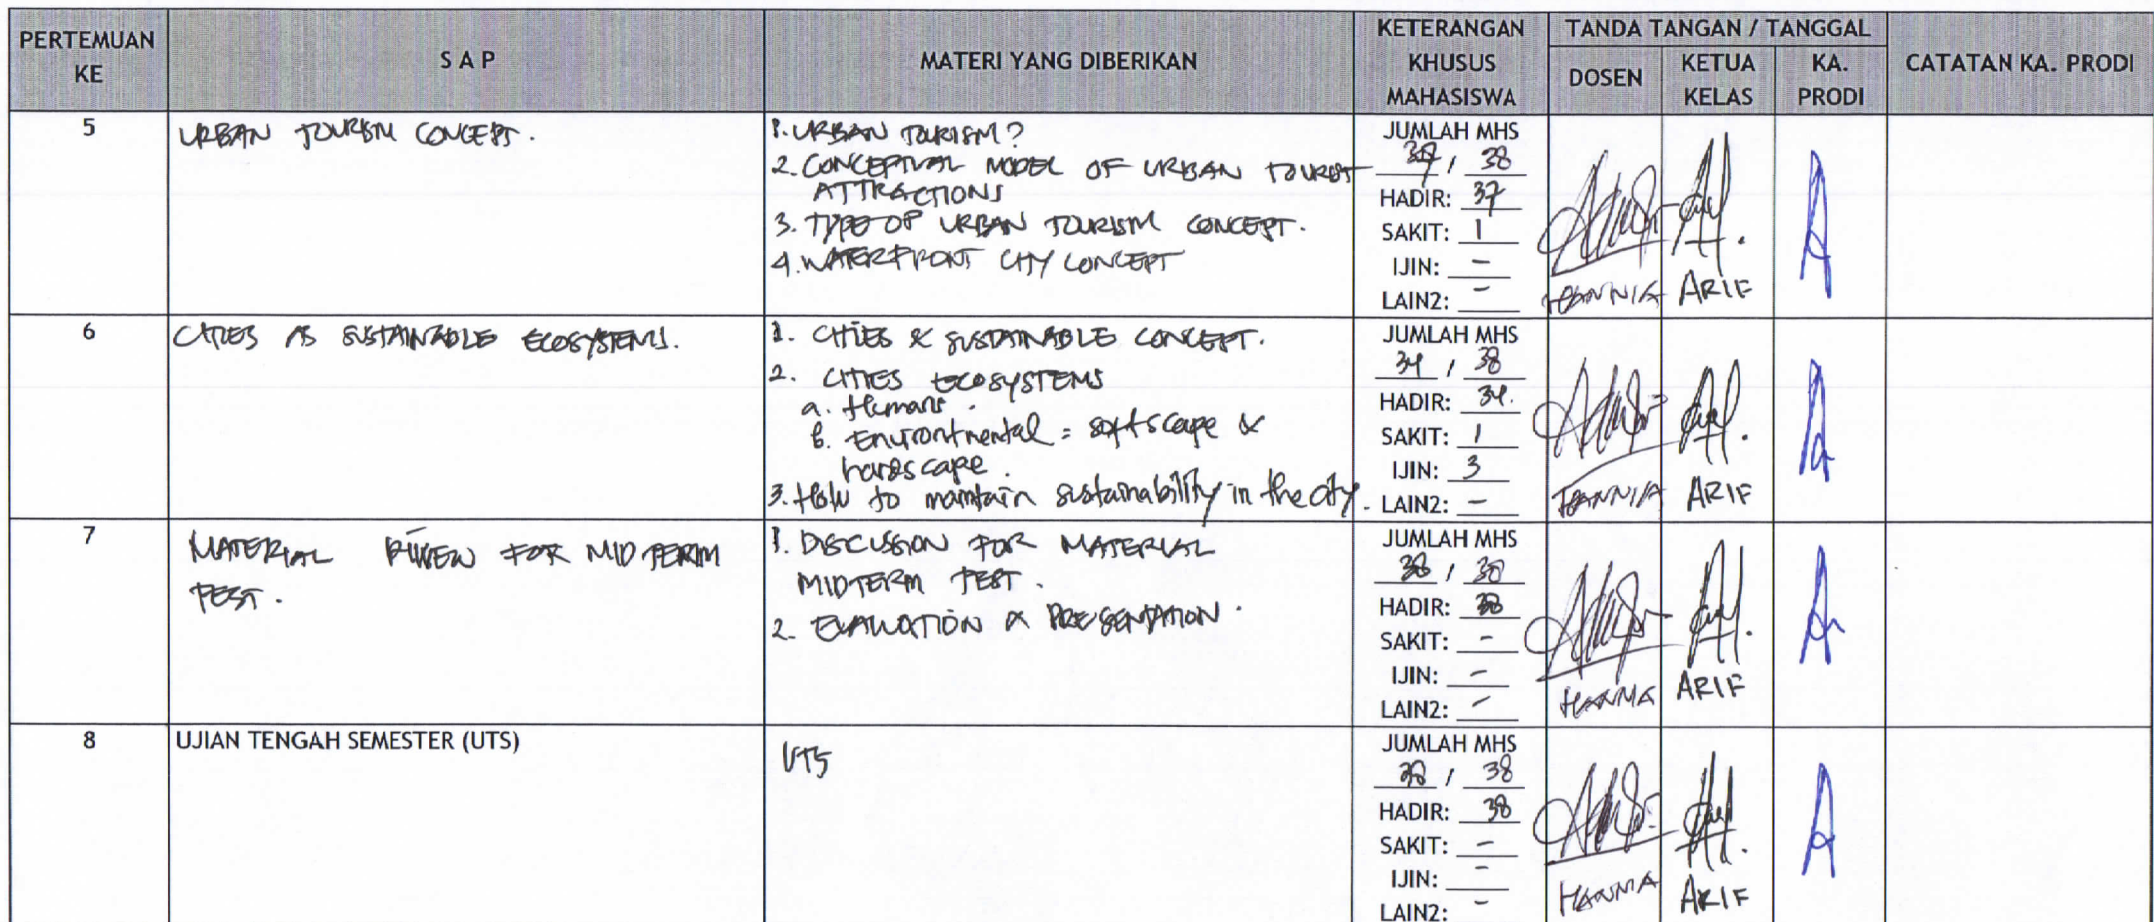 PERTEMUAN KE
S A P
MATERI YANG DIBERIKAN
KETERANGAN KHUSUS MAHASISWA
TANDA TANGAN / TANGGAL
DOSEN
KETUA KELAS
KA. PRODI
CATATAN KA. PRODI
5
URBAN TOURISM CONCEPT.
1. URBAN TOURISM?
2. CONCEPTUAL MODEL OF URBAN TOURIST
ATTRACTIONS
3. TYPE OF URBAN TOURISM CONCEPT.
4. WATERFRONT CITY CONCEPT
JUMLAH MHS
37 / 38
HADIR: 37
SAKIT: 1
IJIN: -
LAIN2: -
ARIF
6
CITIES AS SUSTAINABLE ECOSYSTEMS.
1. CITIES & SUSTAINABLE CONCEPT.
2. CITIES ECOSYSTEMS
a. Humans.
b. Environtmental = softscape &
hardscape.
3. How to maintain sustainability in the city.
JUMLAH MHS
34 / 38
HADIR: 34.
SAKIT: 1
IJIN: 3
LAIN2: -
ARIF
7
MATERIAL FOR MID TERM
TEST.
1. DISCUSSION FOR MATERIAL
MIDTERM TEST.
2. EVALUATION & PRESENTATION.
JUMLAH MHS
38 / 38
HADIR: 38
SAKIT: -
IJIN: -
LAIN2: -
ARIF
8
UJIAN TENGAH SEMESTER (UTS)
UTS
JUMLAH MHS
38 / 38
HADIR: 38
SAKIT: -
IJIN: -
LAIN2: -
ARIF